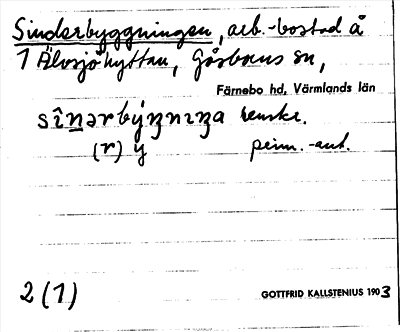 Sinderbyggningen, arb.-bostad å
1 Älvsjöhyttan, Gåsborns sn,
Färnebo hd, Värmlands län
(r) y
2 (1)
GOTTFRID KALLSTENIUS 1903